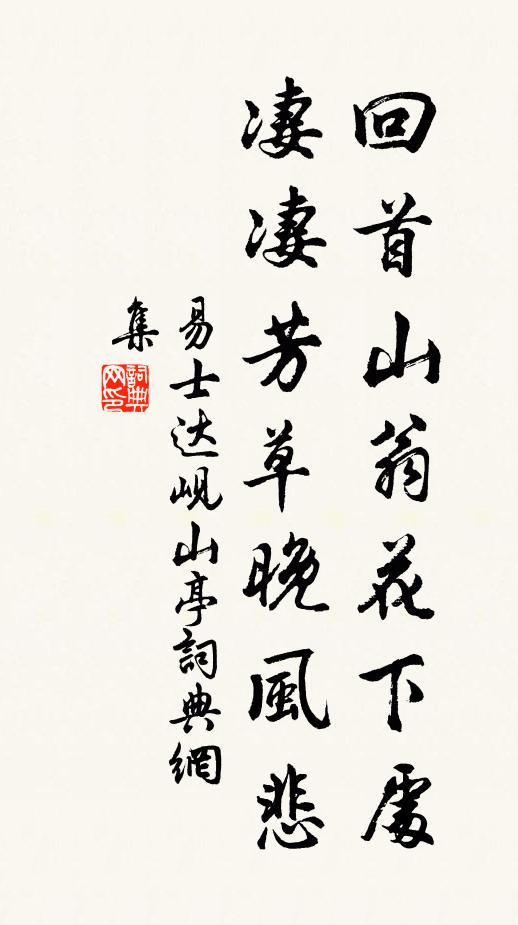 回首山翁花下處
凄凄芳草晚風悲
易士达岘山亭詞典網
集
詞典
网印